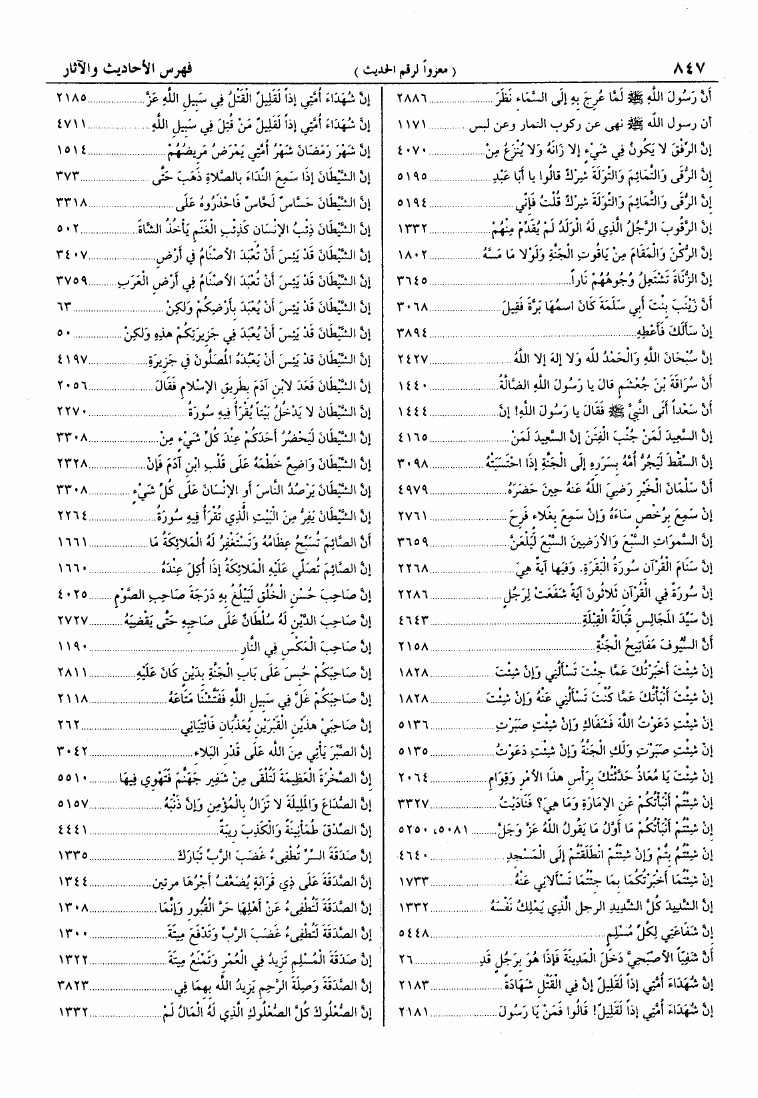 ٨٤٧ ( معزواً لرقم الحديث ) فهرس الأحاديث والآثار
أَنَّ رَسُولَ اللَّهِ ﷺ لَمَّا عُرِجَ بِهِ إِلَى السَّمَاءِ نَظَرَ ........ ٢٨٨٦
أن رسول الله ﷺ نهى عن ركوب النمار وعن لبس ١١٧١
إِنَّ الرِّفْقَ لَا يَكُونُ فِي شَيْءٍ إِلَّا زَانَهُ وَلَا يُنْزَعُ مِنْ ........ ٤٠٧٠
إِنَّ الرُّقَى وَالتَّمَائِمَ وَالتِّوَلَةَ شِرْكٌ قَالُوا يا أَبَا عَبْدِ ........ ٥١٩٥
إِنَّ الرُّقَى وَالتَّمَائِمَ وَالتِّوَلَةَ شِرْكٌ قُلْتُ فَإِنِّي ........ ٥١٩٤
إِنَّ الرَّقُوبَ الرَّجُلُ الَّذِي لَهُ الْوَلَدُ لَمْ يُقَدِّمْ مِنْهُمْ ........ ١٣٣٢
إِنَّ الرُّكْنَ وَالْمَقَامَ مِنْ يَاقُوتِ الْجَنَّةِ وَلَوْلَا مَا مَسَّهُ ........ ١٨٠٢
إِنَّ الزُّنَاةَ تَشْتَعِلُ وُجُوهُهُمْ نَاراً ........ ٣٦٤٥
أَنَّ زَيْنَبَ بِنْتَ أَبِي سَلَمَةَ كَانَ اسمُهَا بَرَّةَ فَقِيلَ ........ ٣٠٦٨
إِنْ سَأَلَكَ فَأَعْطِهِ ........ ٣٨٩٤
إِنَّ سُبْحَانَ اللَّهِ وَالْحَمْدُ لله وَلا إِلهَ إلا اللَّهُ ........ ٢٤٢٧
أَنَّ سُرَاقَةَ بْنَ جُعْشَمٍ قَالَ يا رَسُولَ اللَّهِ الضَّالَّةُ ........ ١٤٤٠
أَنَّ سَعْداً أَتَى النَّبِيَّ ﷺ فَقَالَ يا رَسُولَ اللَّهِ! إِنَّ ........ ١٤٤٤
إِنَّ السعِيدَ لَمَنْ جُنِّبَ الْفِتَنَ إِنَّ السَّعِيدَ لَمَنْ ........ ٤١٦٥
إِنَّ السِّقْطَ لَيَجُرُّ أُمَّهُ بِسَرَرِهِ إِلَى الْجَنَّةِ إِذَا احْتَسَبَتْهُ ........ ٣٠٩٨
أَنَّ سَلْمَانَ الْخَيْرِ رَضِيَ اللَّهُ عَنهُ حِينَ حَضَرَهُ ........ ٤٩٧٩
إِنْ سَمِعَ بِرُخْصٍ سَاءَهُ وَإِنْ سَمِعَ بِغَلَاءٍ فَرِحَ ........ ٢٧٦١
إِنَّ السَّمواتِ السَّبْعَ وَالأَرَضِينَ السَّبْعَ لَيَلْعَنَّ ........ ٣٦٥٩
إِنَّ سَنَامَ الْقُرْآنِ سُورَةُ الْبَقَرَةِ. وَفِيهَا آيَةٌ هِيَ ........ ٢٢٦٨
إِنَّ سُورَةً فِي الْقُرْآنِ ثَلَاثُونَ آيَةً شَفَعَتْ لِرَجُلٍ ........ ٢٢٨٦
إِنَّ سَيِّدَ الْمَجَالِسِ قُبَالَةُ الْقِبْلَةِ ........ ٤٦٤٣
أَنَّ السُّيوفَ مَفَاتِيحُ الْجَنَّةِ ........ ٢١٥٨
إِنْ شِئْتَ أَخْبَرْتُكَ عَمَّا جِئْتَ تَسْأَلُنِي وَإِنْ شِئْتَ ........ ١٨٢٨
إِنْ شِئْتَ أَنْبَأْتُكَ عَمَّا كُنْتَ تَسْأَلُنِي عَنْهُ وَإِنْ شِئْتَ ........ ١٨٢٨
إِنْ شِئْتِ دَعَوْتُ اللَّهَ فَشَفَاكِ وَإِنْ شِئْتِ صَبَرْتِ ........ ٥١٣٦
إِنْ شِئْتِ صَبَرْتِ وَلَكِ الْجَنَّةُ وَإِنْ شِئْتِ دَعَوْتُ ........ ٥١٣٥
إِنْ شِئْتَ يَا مُعَاذُ حَدَّثْتُكَ بِرَأْسِ هذَا الأَمْرِ وَقِوَامِ ........ ٢٠٦٤
إِنْ شِئْتُمْ أَنْبَأْتُكُمْ عَنِ الإِمَارَةِ وَمَا هِيَ؟ فَنَادَيْتُ ........ ٣٣٢٧
إِنْ شِئْتُمْ أَنْبَأْتُكُمْ مَا أَوَّلُ مَا يَقُولُ اللَّهُ عَزَّ وَجَلَّ ........ ٥٠٨١، ٥٢٥٠
إِنْ شِئْتُمْ بِتُّمْ وَإِنْ شِئْتُمْ انْطَلَقْتُمْ إِلَى الْمَسْجِدِ ........ ٤٦٤٠
إِنْ شِئْتُمَا أَخْبَرْتُكُمَا بِمَا جِئْتُمَا تَسْأَلَانِي عَنْهُ ........ ١٧٣٣
إِنَّ الشَّدِيدَ كُلَّ الشَّدِيدِ الرجل الَّذِي يَمْلِكُ نَفْسَهُ ........ ١٣٣٢
إِنَّ شَفَاعَتِي لِكُلِّ مُسْلِمٍ ........ ٥٤٤٨
أَنَّ شُفَيّاً الأَصْبَحِيَّ دَخَلَ الْمَدِينَةَ فَإِذَا هُوَ بِرَجُلٍ قَدِ ........ ٢٦
إِنَّ شُهَدَاءَ أُمَّتِي إِذاً لَقَلِيلٌ إِنَّ فِي الْقَتْلِ شَهَادَةً ........ ٢١٨٣
إِنَّ شُهَدَاءَ أُمَّتِي إِذاً لَقَلِيلٌ! قَالُوا فَمَنْ يَا رَسُولَ ........ ٢١٨١
إِنَّ شُهَدَاءَ أُمَّتِي إِذاً لَقَلِيلٌ الْقَتْلُ فِي سَبِيلِ اللَّهِ عَزَّ ........ ٢١٨٥
إِنَّ شُهَدَاءَ أُمَّتِي إِذاً لَقَلِيلٌ مَنْ قُتِلَ فِي سَبِيلِ اللَّهِ ........ ٤٧١١
إِنَّ شَهْرَ رَمَضَانَ شَهْرُ أُمَّتِي يَمْرَضُ مَرِيضُهُمْ ........ ١٥١٤
إِنَّ الشَّيْطَانَ إِذَا سَمِعَ النِّدَاءَ بِالصَّلَاةِ ذَهَبَ حَتَّى ........ ٣٧٣
إِنَّ الشَّيْطَانَ حَسَّاسٌ لَحَّاسٌ فَاحْذَرُوهُ عَلَى ........ ٣٣١٨
إِنَّ الشَّيْطَانَ ذِئْبُ الإِنْسَانِ كَذِئْبِ الْغَنَمِ يَأْخُذُ الشَّاةَ ........ ٥٠٢
إِنَّ الشَّيْطَانَ قَدْ يَئِسَ أَنْ تُعْبَدَ الأَصْنَامُ فِي أَرْضِ ........ ٣٤٠٧
إِنَّ الشَّيْطَانَ قَدْ يَئِسَ أَنْ تُعْبَدَ الأَصْنَامُ فِي أَرْضِ الْعَرَبِ ........ ٣٧٥٩
إِنَّ الشَّيْطَانَ قَدْ يَئِسَ أَنْ يُعْبَدَ بِأَرْضِكُمْ وَلكِنْ ........ ٦٣
إِنَّ الشَّيْطَانَ قَدْ يَئِسَ أَنْ يُعْبَدَ فِي جَزِيرَتِكُمْ هذِهِ وَلكِنْ ........ ٥٠
إِنَّ الشَّيْطَانَ قد يَئِسَ أَنْ يَعْبُدَهُ الْمُصَلُّونَ فِي جَزِيرَةِ ........ ٤١٩٧
إِنَّ الشَّيْطَانَ قَعَدَ لابْنِ آدَمَ بِطَرِيقِ الإِسْلَامِ فَقَالَ ........ ٢٠٥٦
إِنَّ الشَّيْطَانَ لا يَدْخُلُ بَيْتاً يُقْرَأُ فِيهِ سُورَةُ ........ ٢٢٧٠
إِنَّ الشَّيْطَانَ لَيَحْضُرُ أَحَدَكُمْ عِنْدَ كُلِّ شَيْءٍ مِنْ ........ ٣٣٠٨
إِنَّ الشَّيْطَانَ وَاضِعٌ خَطْمَهُ عَلَى قَلْبِ ابْنِ آدَمَ فَإِنْ ........ ٢٣٢٨
إِنَّ الشَّيْطَانَ يَرْصُدُ النَّاسَ أَوِ الإِنْسَانَ عَلَى كُلِّ شَيْءٍ ........ ٣٣٠٨
إِنَّ الشَّيْطَانَ يَفِرُّ مِنَ الْبَيْتِ الَّذِي تُقْرَأُ فِيهِ سُورَةُ ........ ٢٢٦٤
أَنَّ الصَّائِمَ تُسَبِّحُ عِظَامُهُ وَتَسْتَغْفِرُ لَهُ الْمَلَائِكَةُ مَا ........ ١٦٦١
إِنَّ الصَّائِمَ تُصَلِّي عَلَيْهِ الْمَلَائِكَةُ إِذَا أُكِلَ عِنْدَهُ ........ ١٦٦٠
إِنَّ صَاحِبَ حُسْنِ الْخُلُقِ لَيَبْلُغُ بِهِ دَرَجَةَ صَاحِبِ الصَّوْمِ ........ ٤٠٢٥
إِنَّ صَاحِبَ الدَّيْنِ لَهُ سُلْطَانٌ عَلَى صَاحِبِهِ حَتَّى يَقْضِيَهُ ........ ٢٧٢٧
إِنَّ صَاحِبَ الْمَكْسِ فِي النَّارِ ........ ١١٩٠
إِنَّ صَاحِبَكُمْ حُبِسَ عَلَى بَابِ الْجَنَّةِ بِدَيْنٍ كَانَ عَلَيْهِ ........ ٢٨١١
إِنَّ صَاحِبَكُمْ غَلَّ فِي سَبِيلِ اللَّهِ فَفَتَّشْنَا مَتَاعَهُ ........ ٢١١٨
إِنَّ صَاحِبَيْ هذَيْنِ الْقَبْرَيْنِ يُعَذَّبَانِ فَائْتِيَانِي ........ ٢٦٢
إِنَّ الصَّبْرَ يَأْتِي مِنَ اللَّه عَلَى قَدْرِ الْبَلَاءِ ........ ٣٠٤٢
إِنَّ الصَّخْرَةَ الْعَظِيمَةَ لَتُلْقَى مِنْ شَفِيرِ جَهَنَّمَ فَتَهْوِي فِيهَا ........ ٥٥١٠
إِنَّ الصُّدَاعَ وَالْمَلِيلَةَ لَا تَزَالُ بِالْمُؤْمِنِ وَإِنَّ ذَنْبَهُ ........ ٥١٥٧
إِنَّ الصِّدْقَ طُمَأْنِينَةٌ وَالْكَذِبَ رِيبَةٌ ........ ٤٤٤١
إِنَّ صَدَقَةَ السِّرِّ تُطْفِىءُ غَضَبَ الرَّبِّ تَبَارَكَ ........ ١٣٣٥
إِنَّ الصَّدَقَةَ عَلَى ذِي قَرَابَةٍ يُضَعَّفُ أَجْرُهَا مرتين ........ ١٣٤٤
إِنَّ الصَّدَقَةَ لَتُطْفِىءُ عَنْ أَهْلِهَا حَرَّ الْقُبُورِ وَإِنَّمَا ........ ١٣٠٨
إِنَّ الصَّدَقَةَ لَتُطْفِىءُ غَضَبَ الرَّبِّ وَتَدْفَعُ مِيتَةَ ........ ١٣٠٠
إِنَّ صَدَقَةَ الْمُسْلِمِ تَزِيدُ فِي الْعُمْرِ وَتَمْنَعُ مِيتَةَ ........ ١٣٢٢
إِنَّ الصَّدَقَةَ وَصِلَةَ الرَّحِمِ يَزِيدُ اللَّه بِهِمَا فِي ........ ٣٨٢٣
إِنَّ الصُّعْلُوكَ كُلَّ الصُّعْلُوكِ الَّذِي لَهُ الْمَالُ لَمْ ........ ١٣٣٢